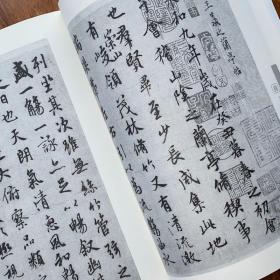 王羲之兰亭序
和九年歲在癸丑暮
會稽山陰之蘭亭脩稧事
也羣賢畢至少長咸集此地
有崇山峻領茂林脩竹又有清流激
列坐其次雖無絲竹管弦之
盛一觴一詠亦足以暢叙幽
日也天朗氣清惠風和
俯察品類